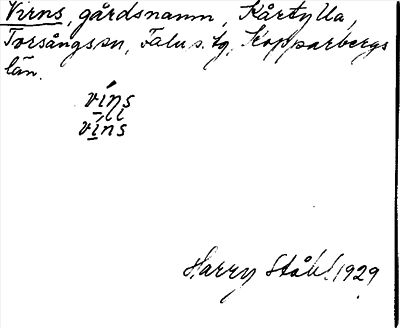 Virns, gårdsnamn, Kårtylla,
Torsångs sn, Falu s. tg, Kopparbergs
län.
víns
vīns
Harry Ståhl 1929